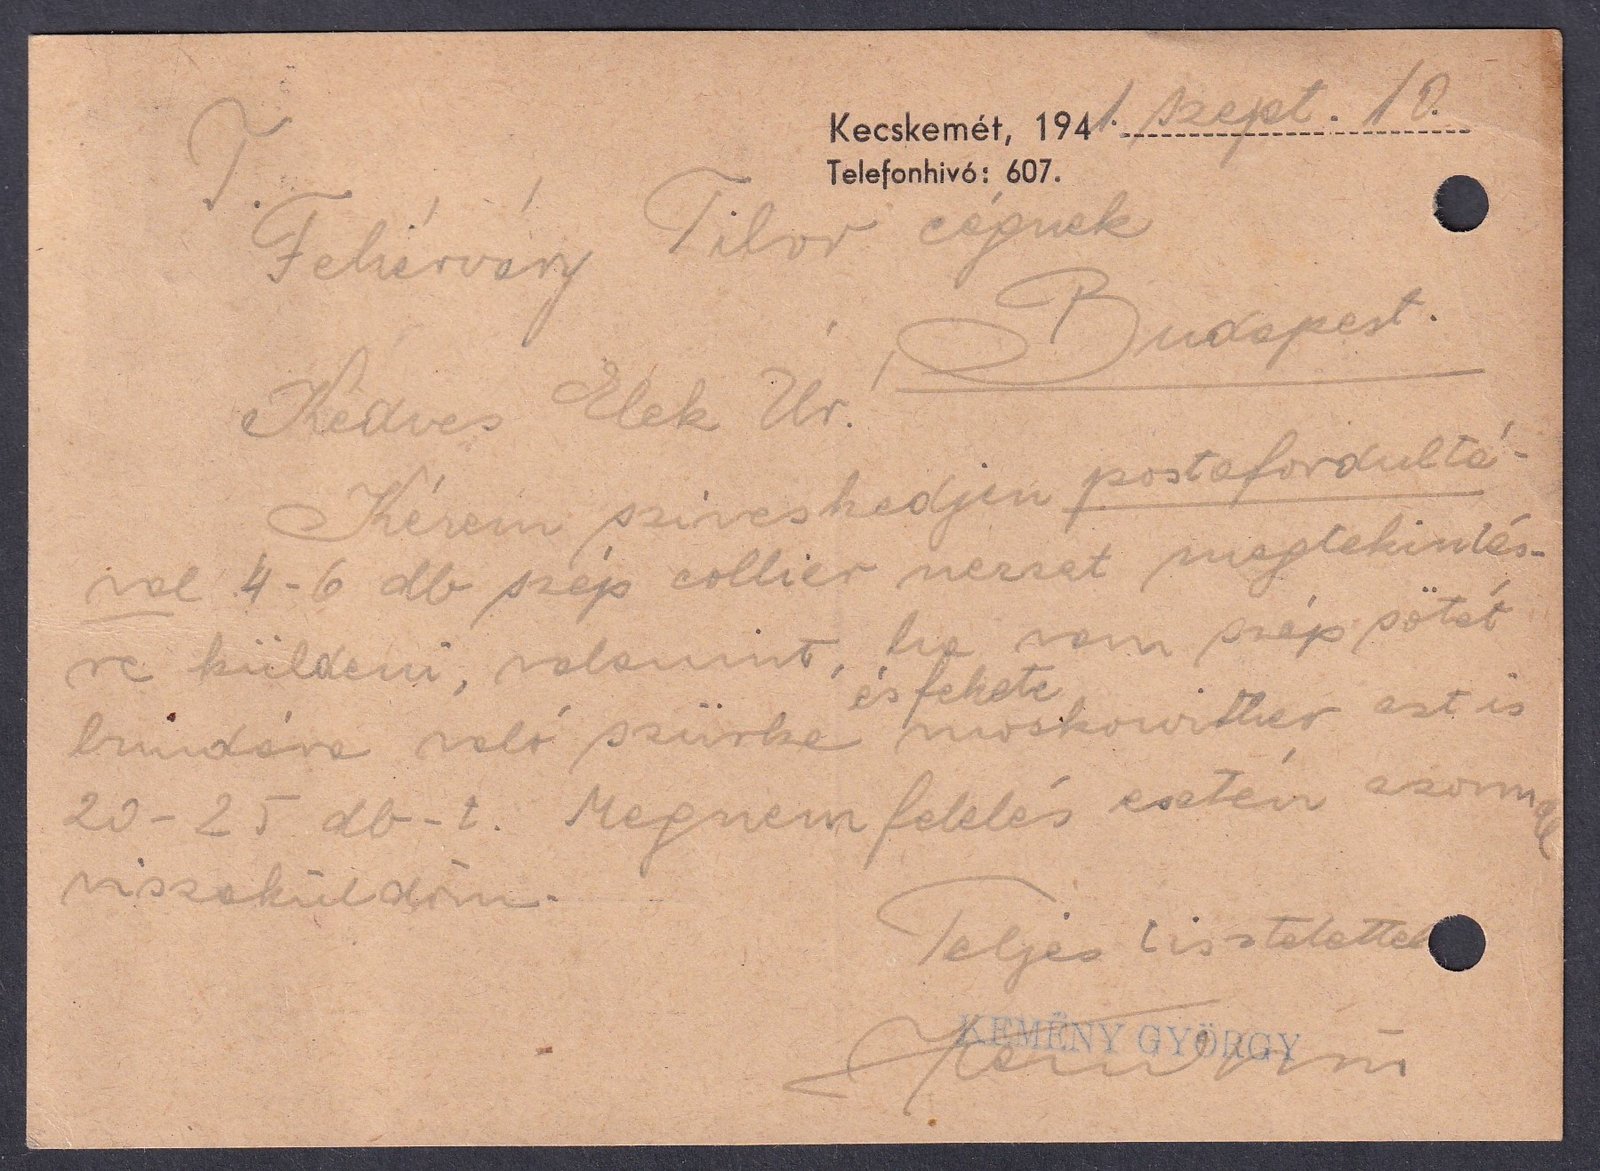 Kecskemét, 1941. szept. 10.
Telefonhivó: 607.
T.
Fehérváry Tibor cégnek
Budapest.
Kedves Elek Úr!
Kérem sziveskedjen postafordultá-
val 4-6 db szép collier nerzet megtekintés-
re küldeni, valamint, ha van szép sötét
bundára való szürke és fekete moskowitter azt is
20-25 db-t. Megnemfelelés esetén azonnal
visszaküldöm.
Teljes tisztelettel
KEMÉNY GYÖRGY